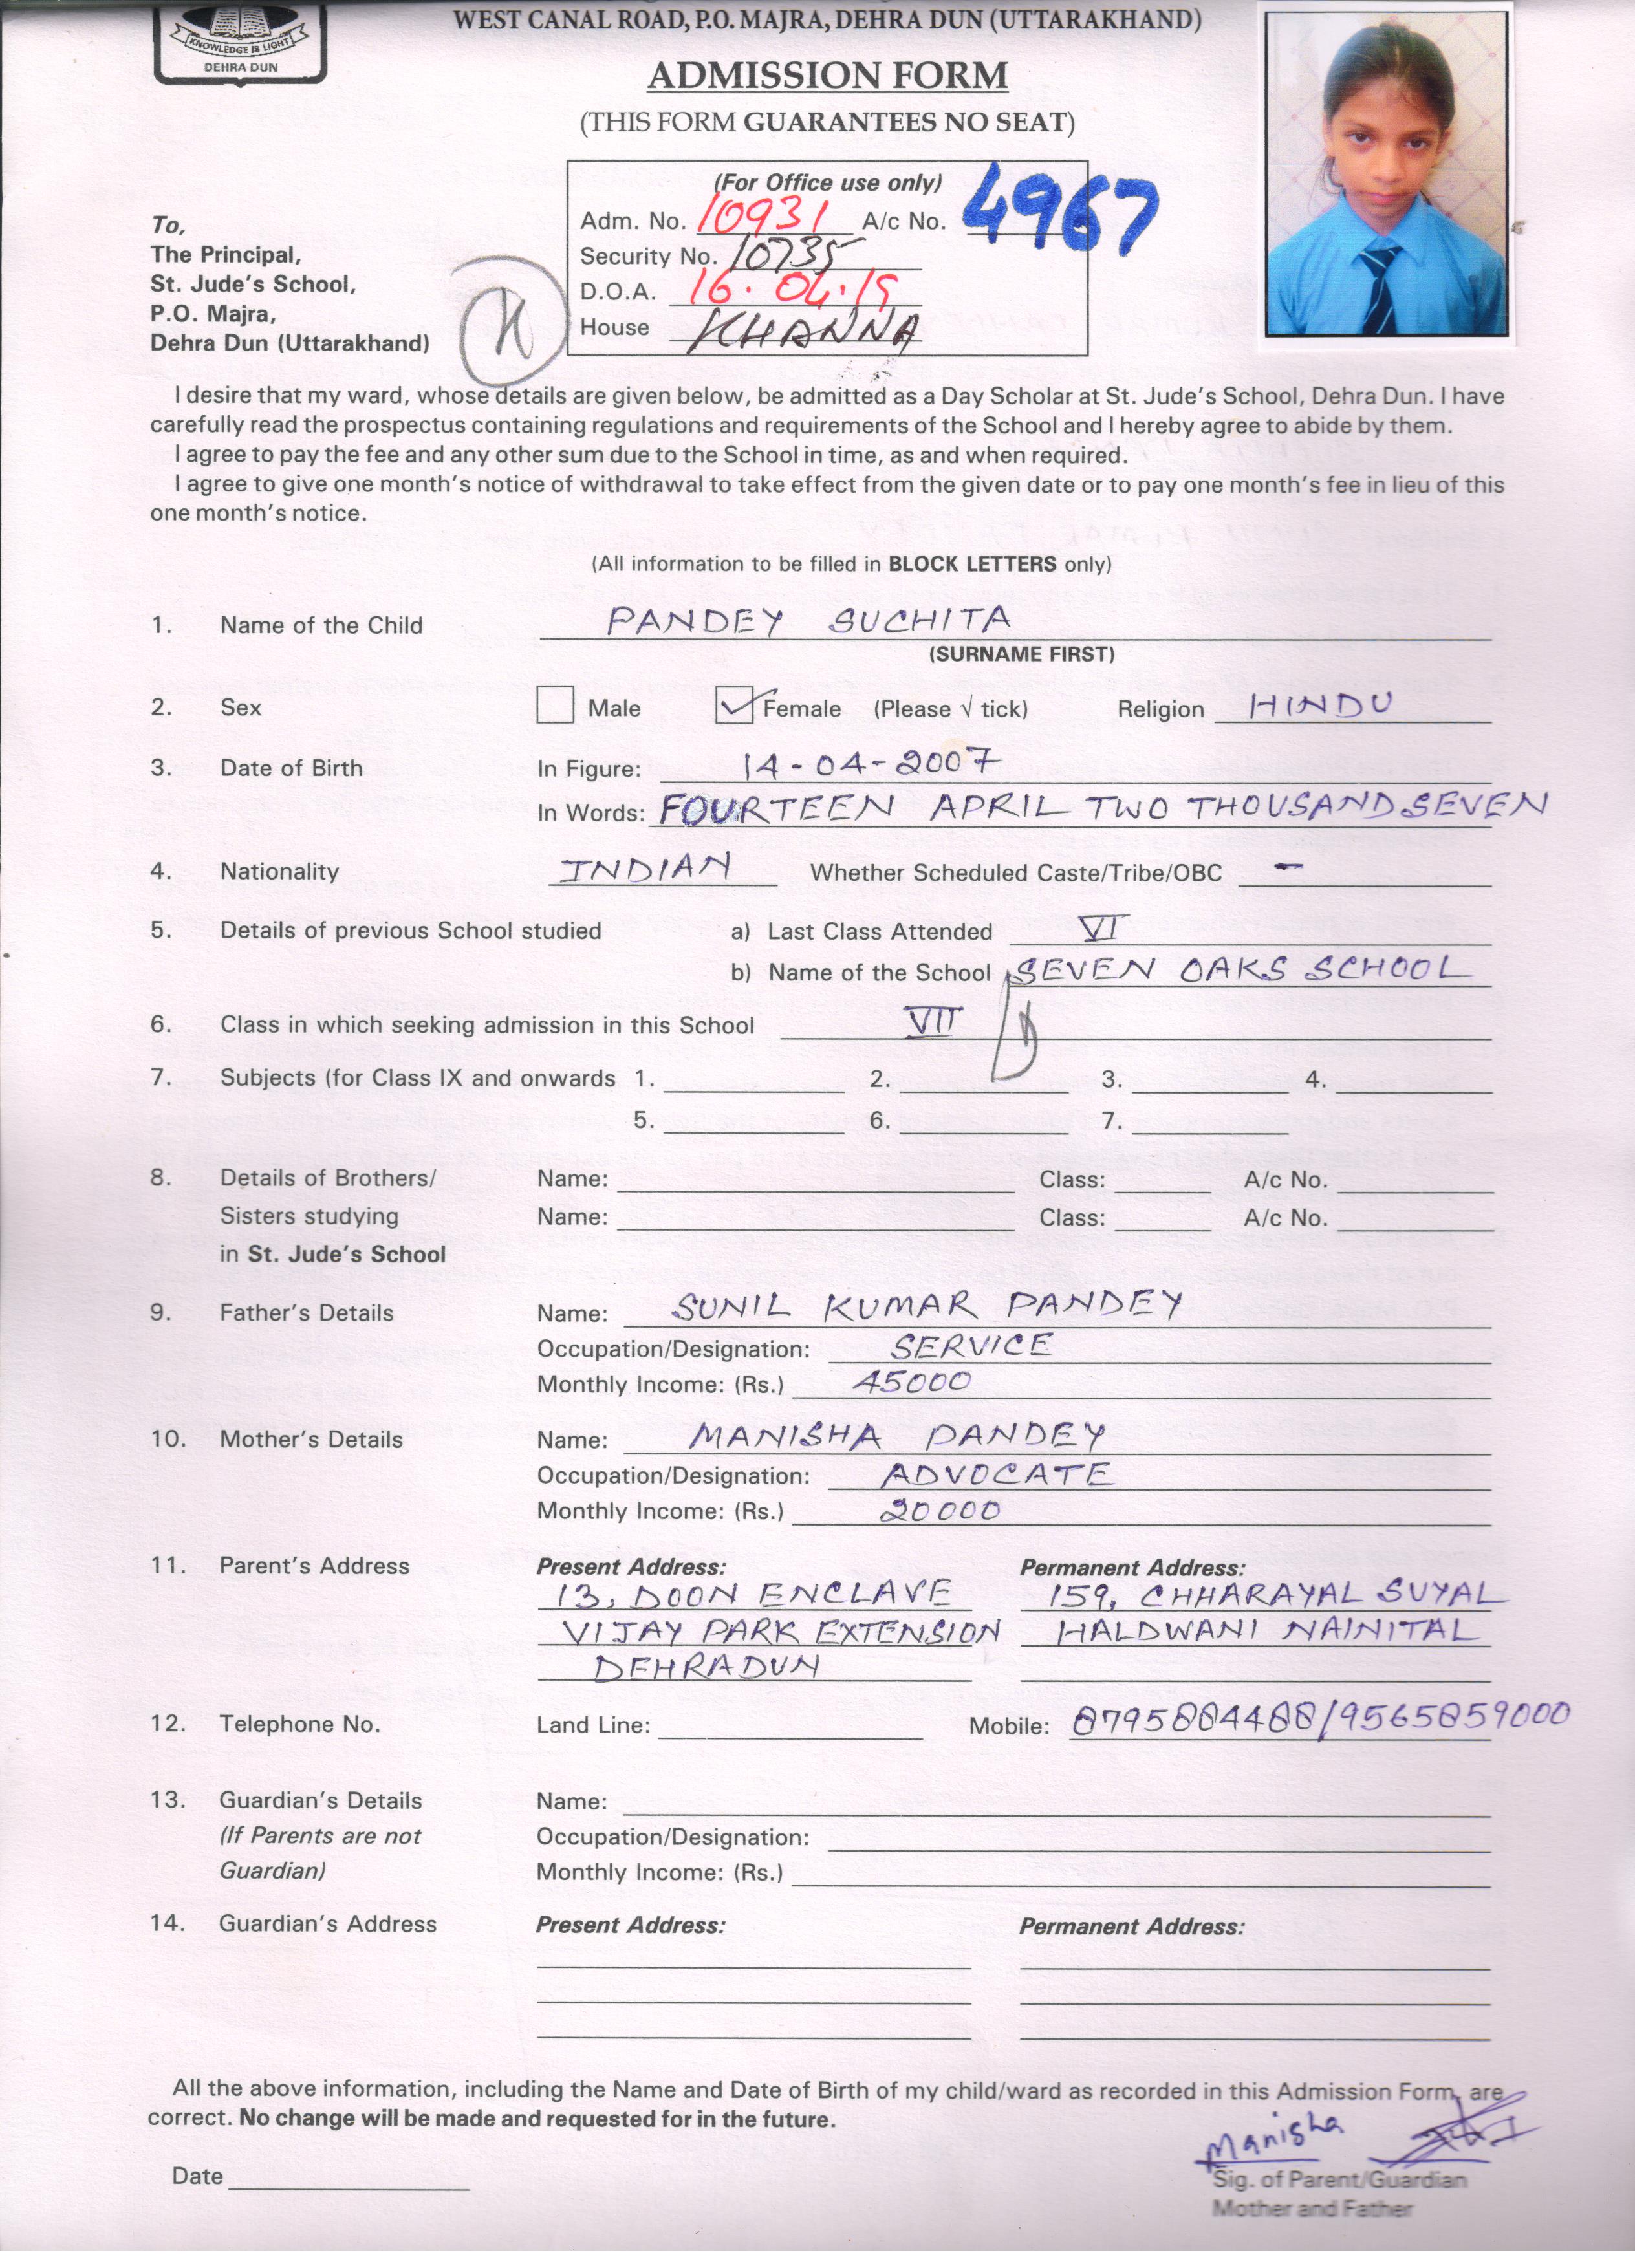 KNOWLEDGE IS LIGHT
DEHRA DUN
WEST CANAL ROAD, P.O. MAJRA, DEHRA DUN (UTTARAKHAND)
ADMISSION FORM
(THIS FORM GUARANTEES NO SEAT)
(For Office use only)
Adm. No. 10931 A/c No. 4967
Security No. 10735
D.O.A. 16.04.19
House KHANNA
To,
The Principal,
St. Jude's School,
P.O. Majra,
Dehra Dun (Uttarakhand)
I desire that my ward, whose details are given below, be admitted as a Day Scholar at St. Jude's School, Dehra Dun. I have
carefully read the prospectus containing regulations and requirements of the School and I hereby agree to abide by them.
I agree to pay the fee and any other sum due to the School in time, as and when required.
I agree to give one month's notice of withdrawal to take effect from the given date or to pay one month's fee in lieu of this
one month's notice.
(All information to be filled in BLOCK LETTERS only)
1. Name of the Child PANDEY SUCHITA
(SURNAME FIRST)
2. Sex Male Female (Please √ tick) Religion HINDU
3. Date of Birth In Figure: 14-04-2007
In Words: FOURTEEN APRIL TWO THOUSAND SEVEN
4. Nationality INDIAN Whether Scheduled Caste/Tribe/OBC -
5. Details of previous School studied a) Last Class Attended VI
b) Name of the School SEVEN OAKS SCHOOL
6. Class in which seeking admission in this School VII
7. Subjects (for Class IX and onwards 1. 2. 3. 4.
5. 6. 7.
8. Details of Brothers/ Name: Class: A/c No.
Sisters studying Name: Class: A/c No.
in St. Jude's School
9. Father's Details Name: SUNIL KUMAR PANDEY
Occupation/Designation: SERVICE
Monthly Income: (Rs.) 45000
10. Mother's Details Name: MANISHA PANDEY
Occupation/Designation: ADVOCATE
Monthly Income: (Rs.) 20000
11. Parent's Address Present Address: Permanent Address:
13, DOON ENCLAVE 159, CHHARAYAL SUYAL
VIJAY PARK EXTENSION HALDWANI NAINITAL
DEHRADUN
12. Telephone No. Land Line: Mobile: 8795884488/9565859000
13. Guardian's Details Name:
(If Parents are not Occupation/Designation:
Guardian) Monthly Income: (Rs.)
14. Guardian's Address Present Address: Permanent Address:
All the above information, including the Name and Date of Birth of my child/ward as recorded in this Admission Form, are
correct. No change will be made and requested for in the future.
Manisha
Date Sig. of Parent/Guardian
Mother and Father